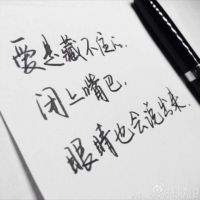 爱是藏不住的,
闭上嘴巴,
眼睛也会说出来.